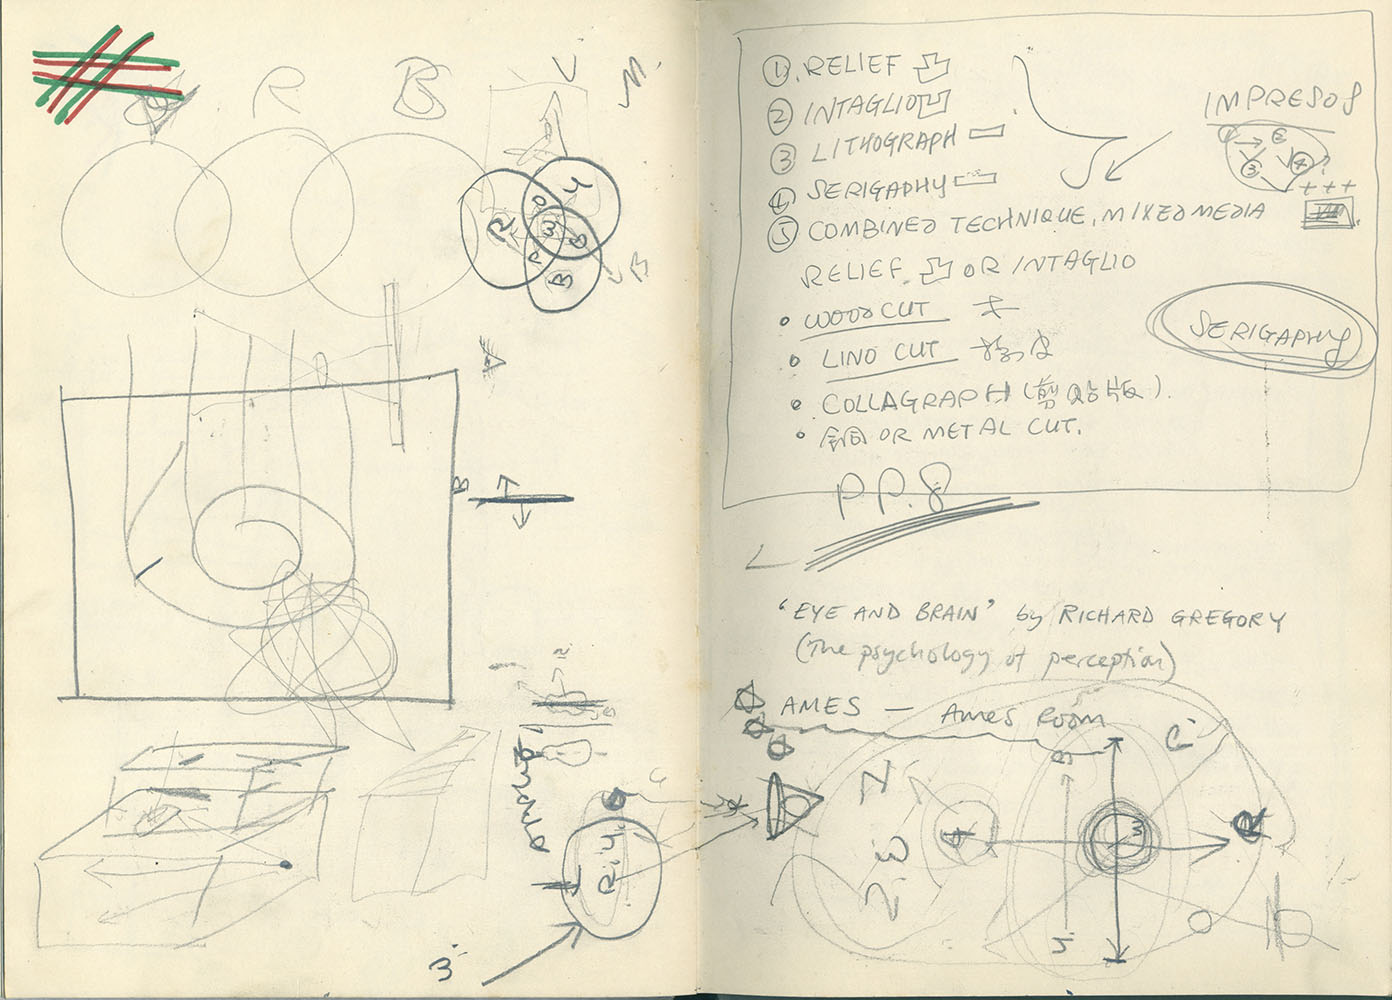 R B
V M.
Y
R O 3 G
P B
B
A
B
R.Y.
G
3.
① RELIEF
② INTAGLIO
③ LITHOGRAPH
④ SERIGAPHY
⑤ COMBINED TECHNIQUE, MIXED MEDIA
RELIEF OR INTAGLIO
• WOOD CUT 木
• LINO CUT 橡皮
• COLLAGRAPH (剪貼版).
• 銅 OR METAL CUT.
P P. 8
IMPRESOS
① → ②
③ ④ ?
+ + +
SERIGAPHY
'EYE AND BRAIN' by RICHARD GREGORY
(The psychology of perception)
AMES — Ames Room
B
4 3 R
Y